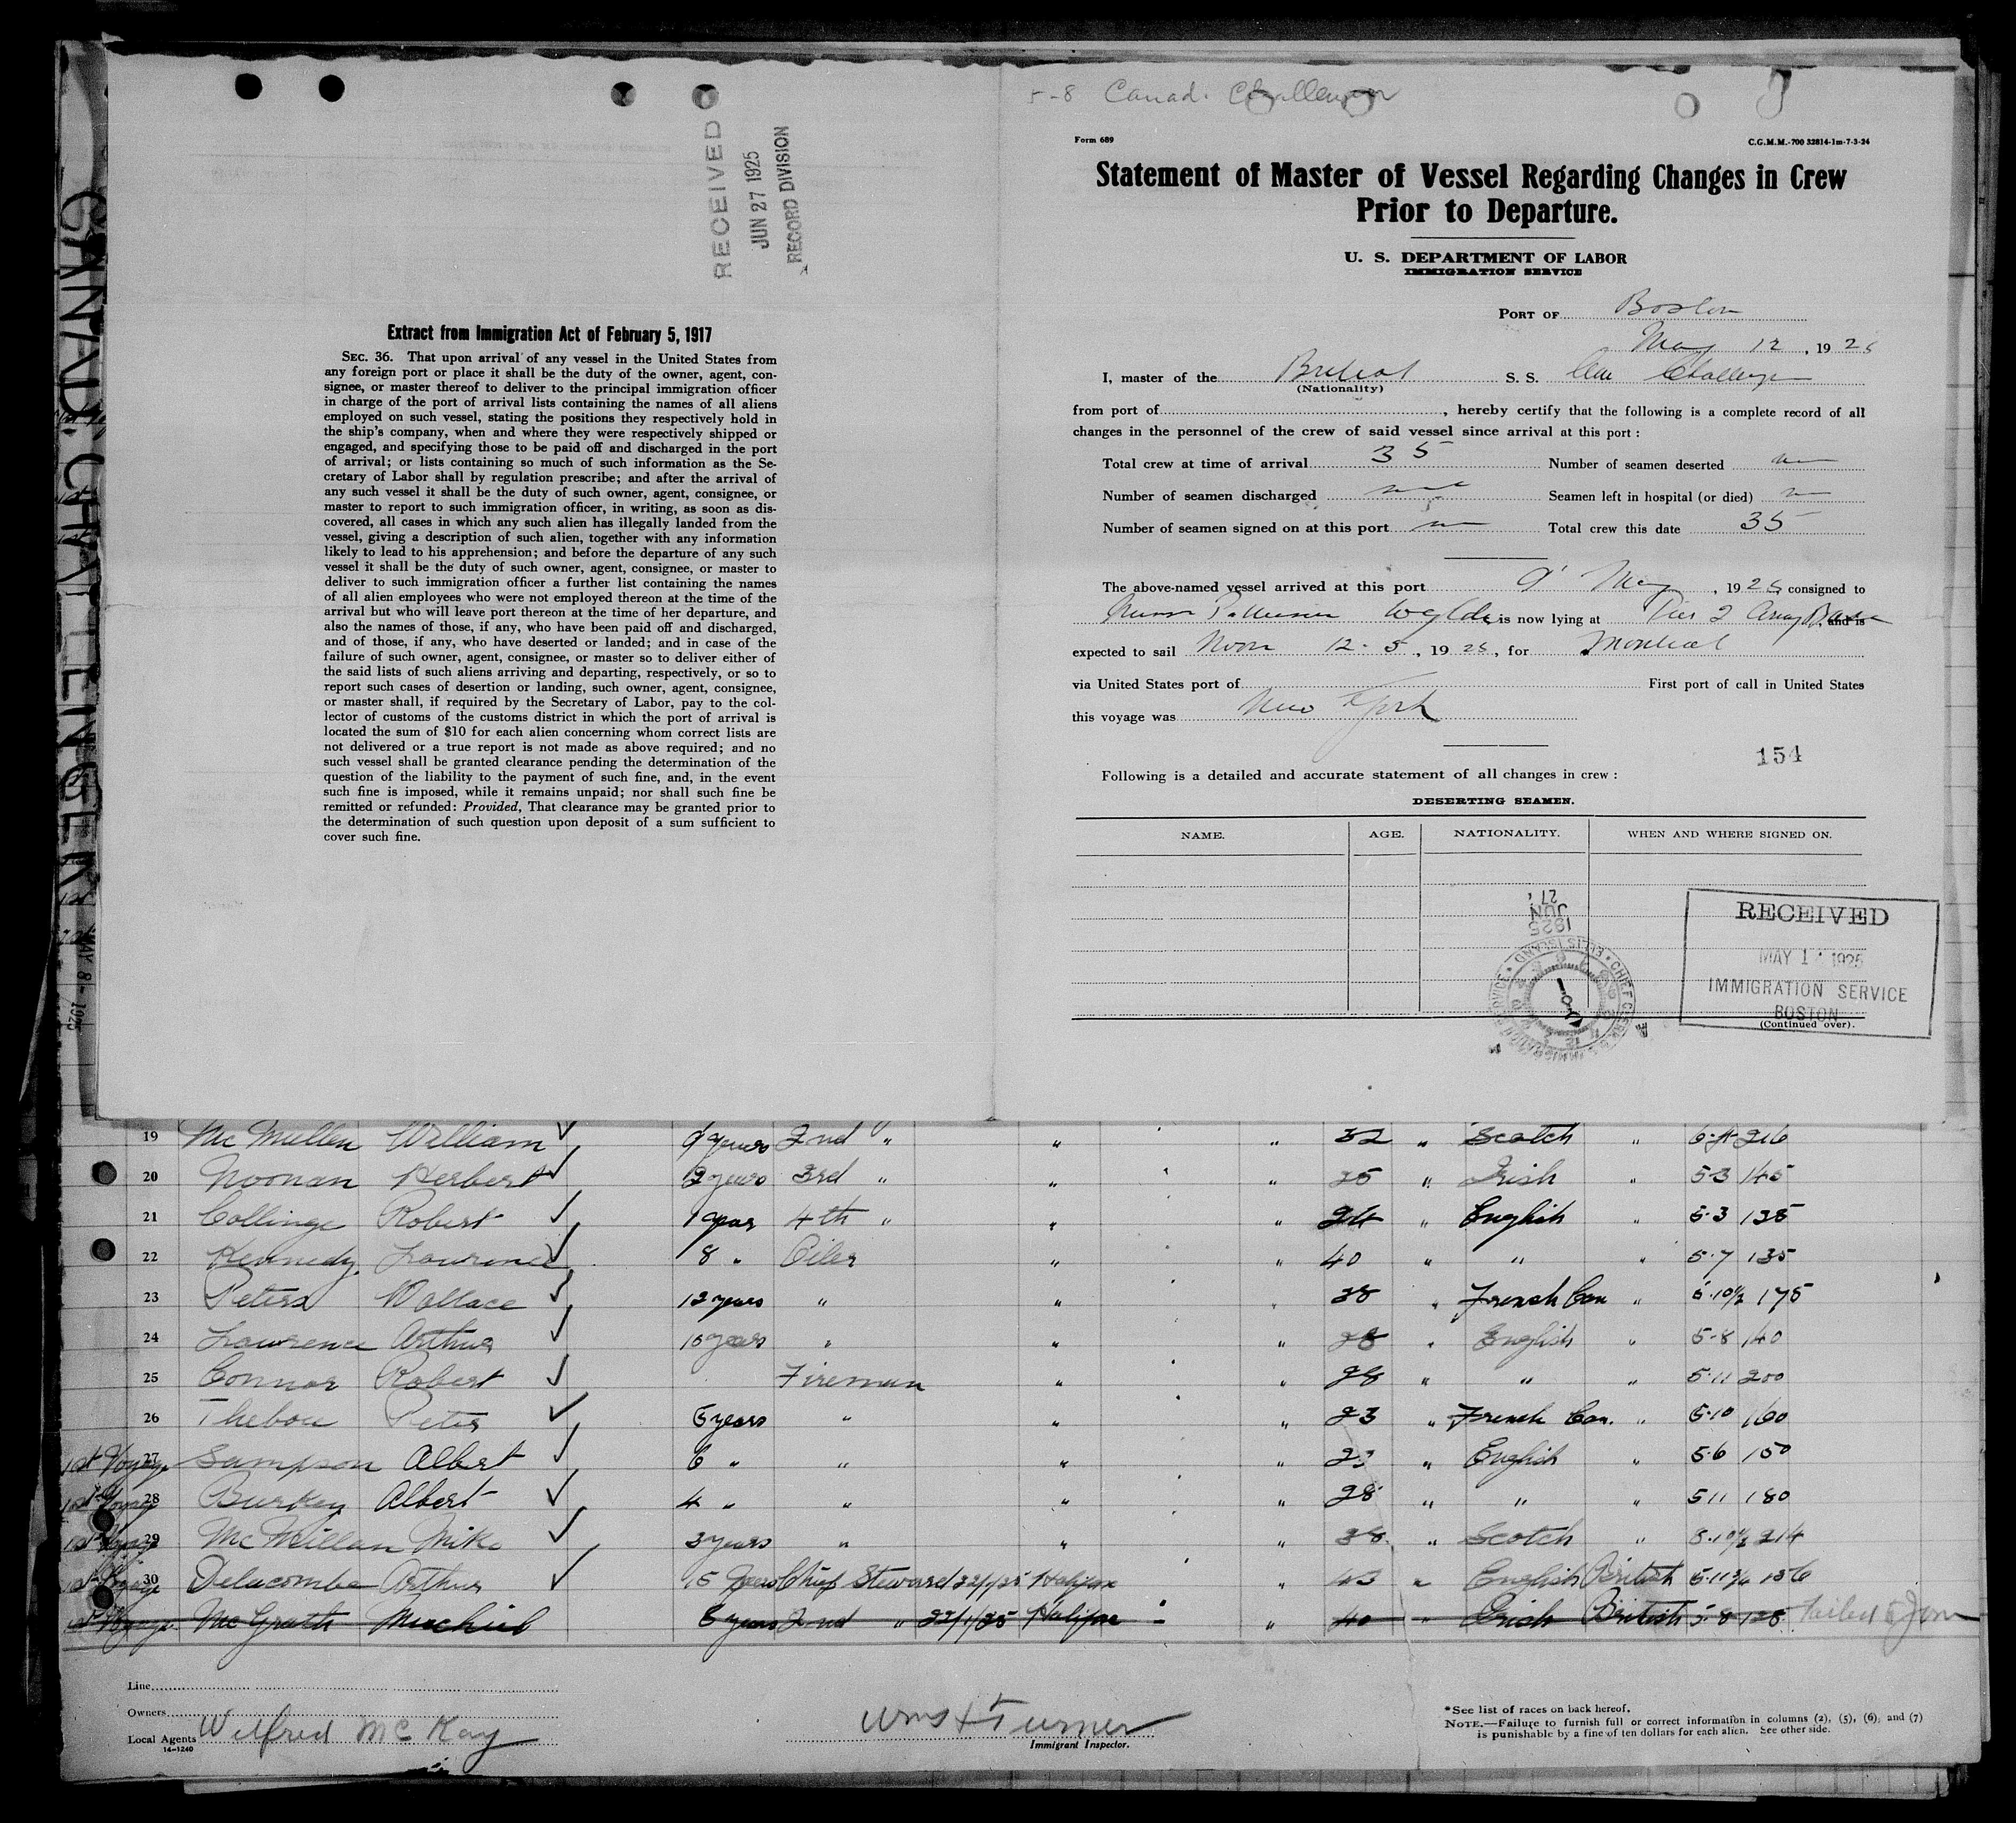 CANAD. CHALLENGER
MAY 8 - 1925
RECEIVED
JUN 27 1925
RECORD DIVISION
Extract from Immigration Act of February 5, 1917
SEC. 36. That upon arrival of any vessel in the United States from
any foreign port or place it shall be the duty of the owner, agent, con-
signee, or master thereof to deliver to the principal immigration officer
in charge of the port of arrival lists containing the names of all aliens
employed on such vessel, stating the positions they respectively hold in
the ship's company, when and where they were respectively shipped or
engaged, and specifying those to be paid off and discharged in the port
of arrival; or lists containing so much of such information as the Se-
cretary of Labor shall by regulation prescribe; and after the arrival of
any such vessel it shall be the duty of such owner, agent, consignee, or
master to report to such immigration officer, in writing, as soon as dis-
covered, all cases in which any such alien has illegally landed from the
vessel, giving a description of such alien, together with any information
likely to lead to his apprehension; and before the departure of any such
vessel it shall be the duty of such owner, agent, consignee, or master to
deliver to such immigration officer a further list containing the names
of all alien employees who were not employed thereon at the time of the
arrival but who will leave port thereon at the time of her departure, and
also the names of those, if any, who have been paid off and discharged,
and of those, if any, who have deserted or landed; and in case of the
failure of such owner, agent, consignee, or master so to deliver either of
the said lists of such aliens arriving and departing, respectively, or so to
report such cases of desertion or landing, such owner, agent, consignee,
or master shall, if required by the Secretary of Labor, pay to the col-
lector of customs of the customs district in which the port of arrival is
located the sum of $10 for each alien concerning whom correct lists are
not delivered or a true report is not made as above required; and no
such vessel shall be granted clearance pending the determination of the
question of the liability to the payment of such fine, and, in the event
such fine is imposed, while it remains unpaid; nor shall such fine be
remitted or refunded: Provided, That clearance may be granted prior to
the determination of such question upon deposit of a sum sufficient to
cover such fine.
5-8 Canad. Challenger
Form 689 C.G.M.M.-700 32814-1m-7-3-24
Statement of Master of Vessel Regarding Changes in Crew
Prior to Departure.
U. S. DEPARTMENT OF LABOR
IMMIGRATION SERVICE
PORT OF Boston
May 12, 1925
I, master of the British S. S. Challenger
(Nationality)
from port of , hereby certify that the following is a complete record of all
changes in the personnel of the crew of said vessel since arrival at this port :
Total crew at time of arrival 35 Number of seamen deserted
Number of seamen discharged Seamen left in hospital (or died)
Number of seamen signed on at this port Total crew this date 35
The above-named vessel arrived at this port 9 May , 1925 consigned to
is now lying at Pier 2 Army Base, and is
expected to sail Noon 12.5, 1925, for Montreal
via United States port of First port of call in United States
this voyage was New York
154
Following is a detailed and accurate statement of all changes in crew :
DESERTING SEAMEN.
NAME. AGE. NATIONALITY. WHEN AND WHERE SIGNED ON.
1925 JUN 27
RECEIVED
MAY 1 1925
IMMIGRATION SERVICE
BOSTON
(Continued over).
19 McMullen William 9 years 2nd " " " 32 " Scotch " 216
20 Noonan Herbert 2 years 3rd " " " 25 " Irish " 5-3 145
21 Collinge Robert 1 year 4th " " " 24 " English " 5-3 135
22 Kennedy Lawrence 8 " Oiler " " 40 " " " 5-7 135
23 Peters Wallace 12 years " " " 38 " French Can " 5-10½ 175
24 Lawrence Arthur 10 years " " " 28 " English " 5-8 140
25 Connor Robert Fireman " " 28 " " " 5-11 200
26 Thebou Peter 5 years " " " 23 " French Can. " 5-10 160
1st Voyage 27 Sampson Albert 6 " " " " 23 " English " 5-6 150
1st Voyage 28 Burkey Albert 4 " " " " 28 " " " 5-11 180
1st Voyage 29 McMillan Mike 3 years " " " 38 " Scotch " 5-10½ 214
1st Voyage 30 Delacombe Arthur 15 years Chief Steward 22/1/25 Halifax " 43 " English British 136
1st Voyage McGrath Michiel 5 years 2nd " 22/1/25 Halifax " 40 " Irish British 5-8 128 Failed to Join
Line
Owners
Local Agents Wilfred McKay
14-1240
Turner
Immigrant Inspector.
*See list of races on back hereof.
NOTE.—Failure to furnish full or correct information in columns (2), (5), (6), and (7)
is punishable by a fine of ten dollars for each alien. See other side.